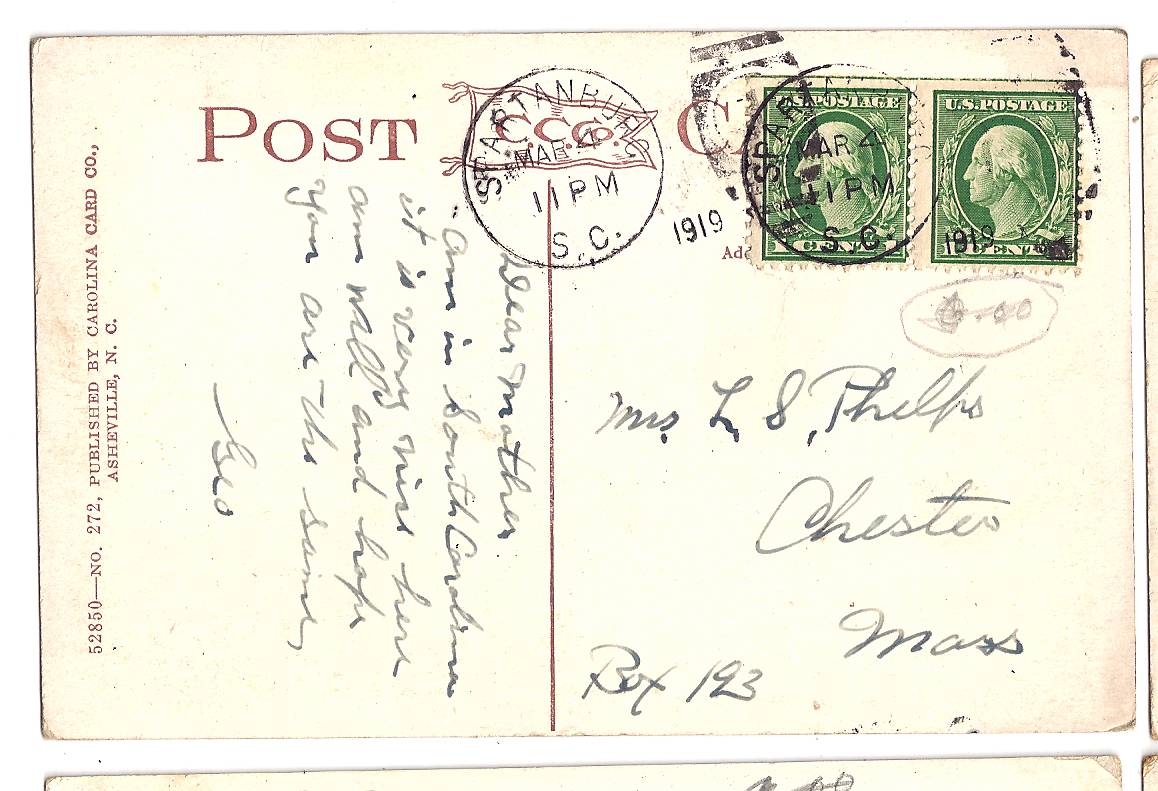 POST C
C.C.Co.
SPARTANBURG
MAR 4
11 PM
S.C.
1919
SPARTANBURG
MAR 4
11 PM
S.C.
1919
U.S. POSTAGE
CENT
U.S. POSTAGE
CENT
Dear Mother.
am in South Carolina
it is very nice here
am well and hope
you are the same,
Geo
Mrs. L S, Phelps
Chester
Mass
Box 193
52850—NO. 272, PUBLISHED BY CAROLINA CARD CO.,
ASHEVILLE, N. C.